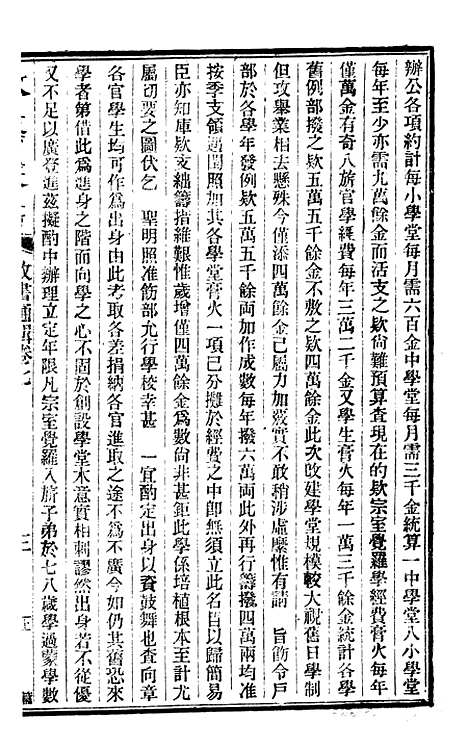 辦公各項約計每小學堂每月需六百金中學堂每月需三千金統算一中學堂八小學堂
每年至少亦需九萬餘金而活支之欵尚難預算查現在的欵宗室覺羅學經費膏火每年
僅萬金有奇八旂官學經費每年三萬二千金又學生膏火每年一萬三千餘金統計各學
舊例部撥之欵五萬五千餘金不敷之欵四萬餘金此次改建學堂規模較大視舊日學制
但攻舉業相去懸殊今僅添四萬餘金已屬力加覈實不敢稍涉虛縻惟有請　旨飭令戶
部於各學年發例欵五萬五千餘兩加作成數每年撥六萬兩此外再行籌撥四萬兩均准
按季支領遇閏照加其各學堂膏火一項已分攤於經費之中即無須立此名目以歸簡易
臣亦知庫欵支絀籌措維艱惟歲增僅四萬餘金爲數尚非甚鉅此學係培植根本至計尤
屬切要之圖伏乞　聖明照准飭部允行學校幸甚　一宜酌定出身以資鼓舞也查向章
各官學生均可作爲出身由此考取各差捐納各官進取之途不爲不廣今如仍其舊恐來
學者第借此爲進身之階而向學之心不固於創設學堂本意實相剌謬然出身若不從優
又不足以廣登進茲擬酌中辦理立定年限凡宗室覺羅八旂子弟於七八歲學過蒙學數
政書通輯卷七